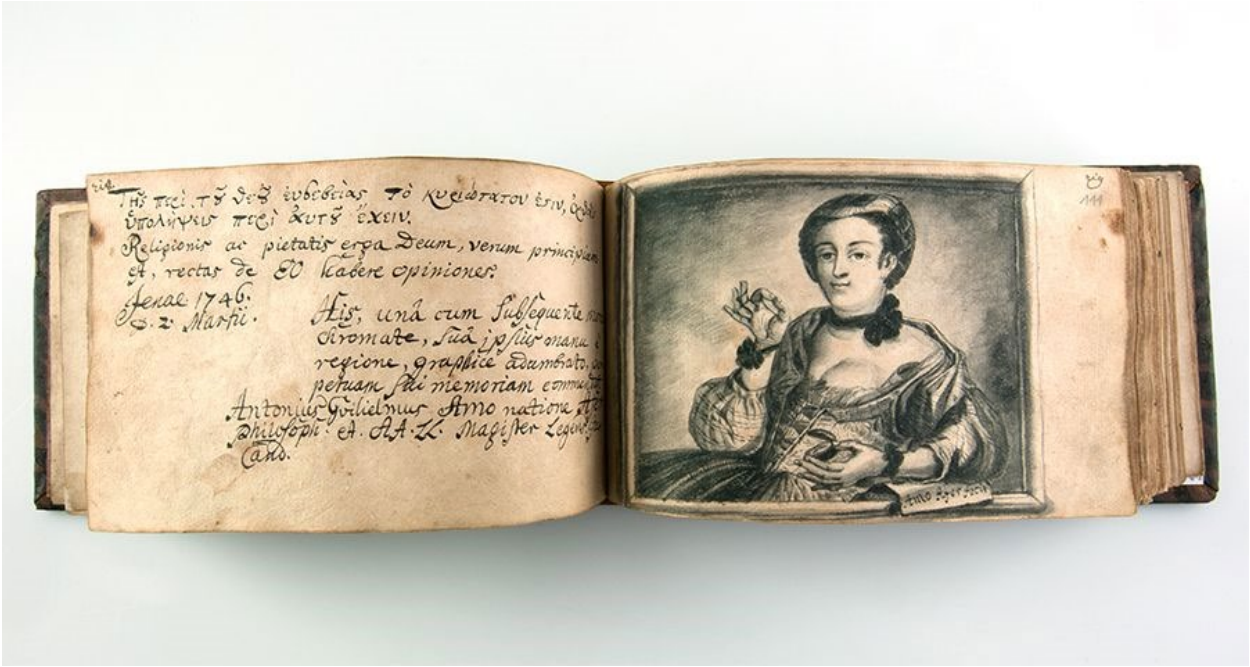 Τῆς περὶ τȣ͂ θεȣ͂ ἐυσεβείας τὸ κυριώτατον ἐςιν,
ὑπολήψεις περὶ ἀυτȣ͂ ἔχειν.
Religionis ac pietatis erga Deum, verum
est, rectas de EO habere opiniones.
Jenae 1746.
d. 2. Martii.
His, unâ cum subsequente
chromate, suâ ipsius manu e
regione, graphice adumbrato,
petuam sui memoriam
Antonius Guilielmus Amo natione
Philosoph. et AA. LL. Magister Legens
Cand.
111
Amo Afer